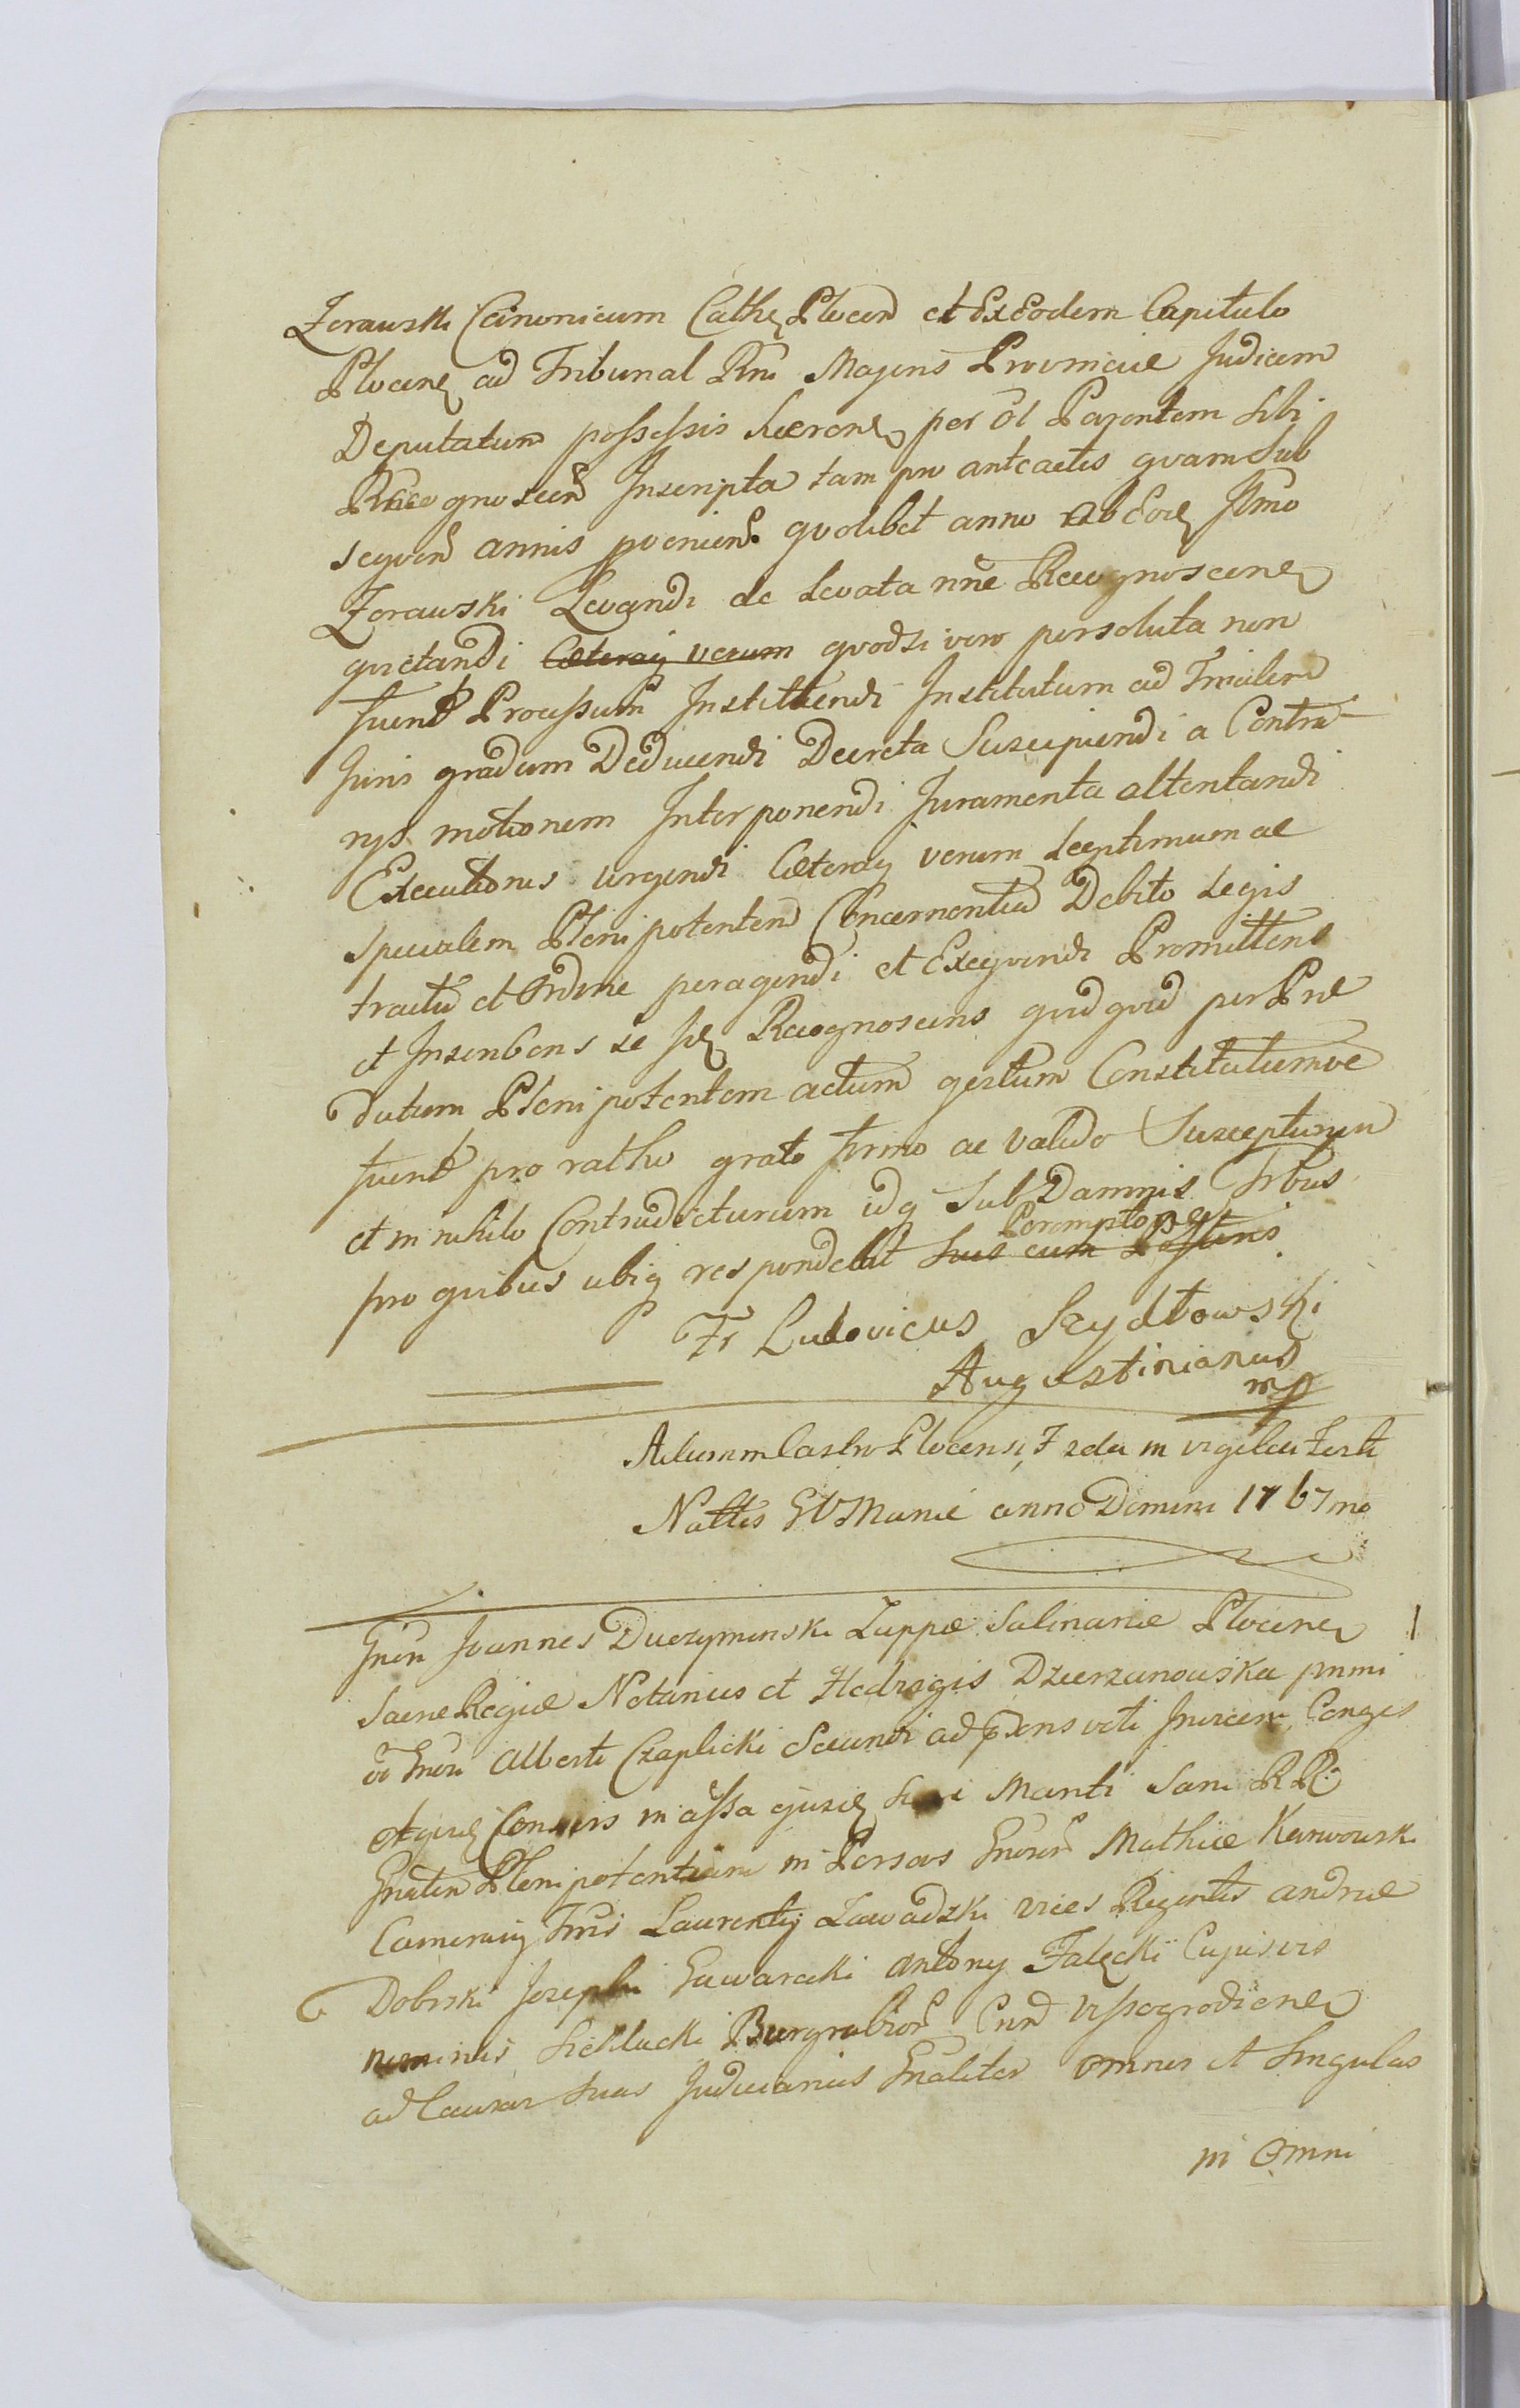 Zorawski Canonicum Cathe Plocen et Ex Eodem Capitulo
Plocene ad Tribunal Rni Majoris Provinciæ Judicem
Deputatum possessis per ol Parentem sibi
Recognoscen Inscripta tam pro anteactis qvam sub
seqven annis provenien qvolibet anno ab Eod Illmo
Zorawski Levandi de Levata nne Recognoscene
qvietandi Cæteraq verum qvodsi vero persoluta non
fuerit Processum Instituendi Institutum ad Finalem
Juris gradum Deducendi Decreta Suscipiendi a Contra-
rys motionem Interponendi Juramenta attentandi
Executiones urgendi Cæteraq verum Legitimum ac
specialem Plenipotentem Concernentia Debito Legis
tractu et Ordine peragendi et Exeqvendi Promittens
et Inscribens se Recognoscens qvidqvid per Præ
datum Plenipotentem actum gestum Constitutumve
fuerit pro ratho grato firmo ac valido Suscepturum
et in nihilo Contradicturum idq Sub Damnis
Peremptorie
pro qvibus ubiq respondebit suis cum Possoris
Fr Ludovicus Szydłowski
Augustinianus
mp
Actum in Castro Plocensi Fria 2da in vigilia Festi
Nattis BV Mariæ anno Domini 1767mo
Gnen Joannes Duczyminski Zuppæ Salinariæ Plocene
Sacræ Regiæ Notarius et Hedvigis Dzierzanowska primi
vo Gnen Alberti Czaplicki Secundi ad præns voti Invicem Conges
et qvid Consors in assa ejusd sui Mariti Sani RR
Gnalem Plenipotentiam in Persas Gnoru Mathiæ Karwowski
Camerarij Laurentij Zawadzki vices Regentis Andreæ
Dobrski Josephi Gawarecki Antony Fałęcki Cujusvis
nominis Sieklucki Burgrabior Cnd Vissogrodiene
ad Causas suas Judiciarias Gnaliter omnes et Singulas
in Omni